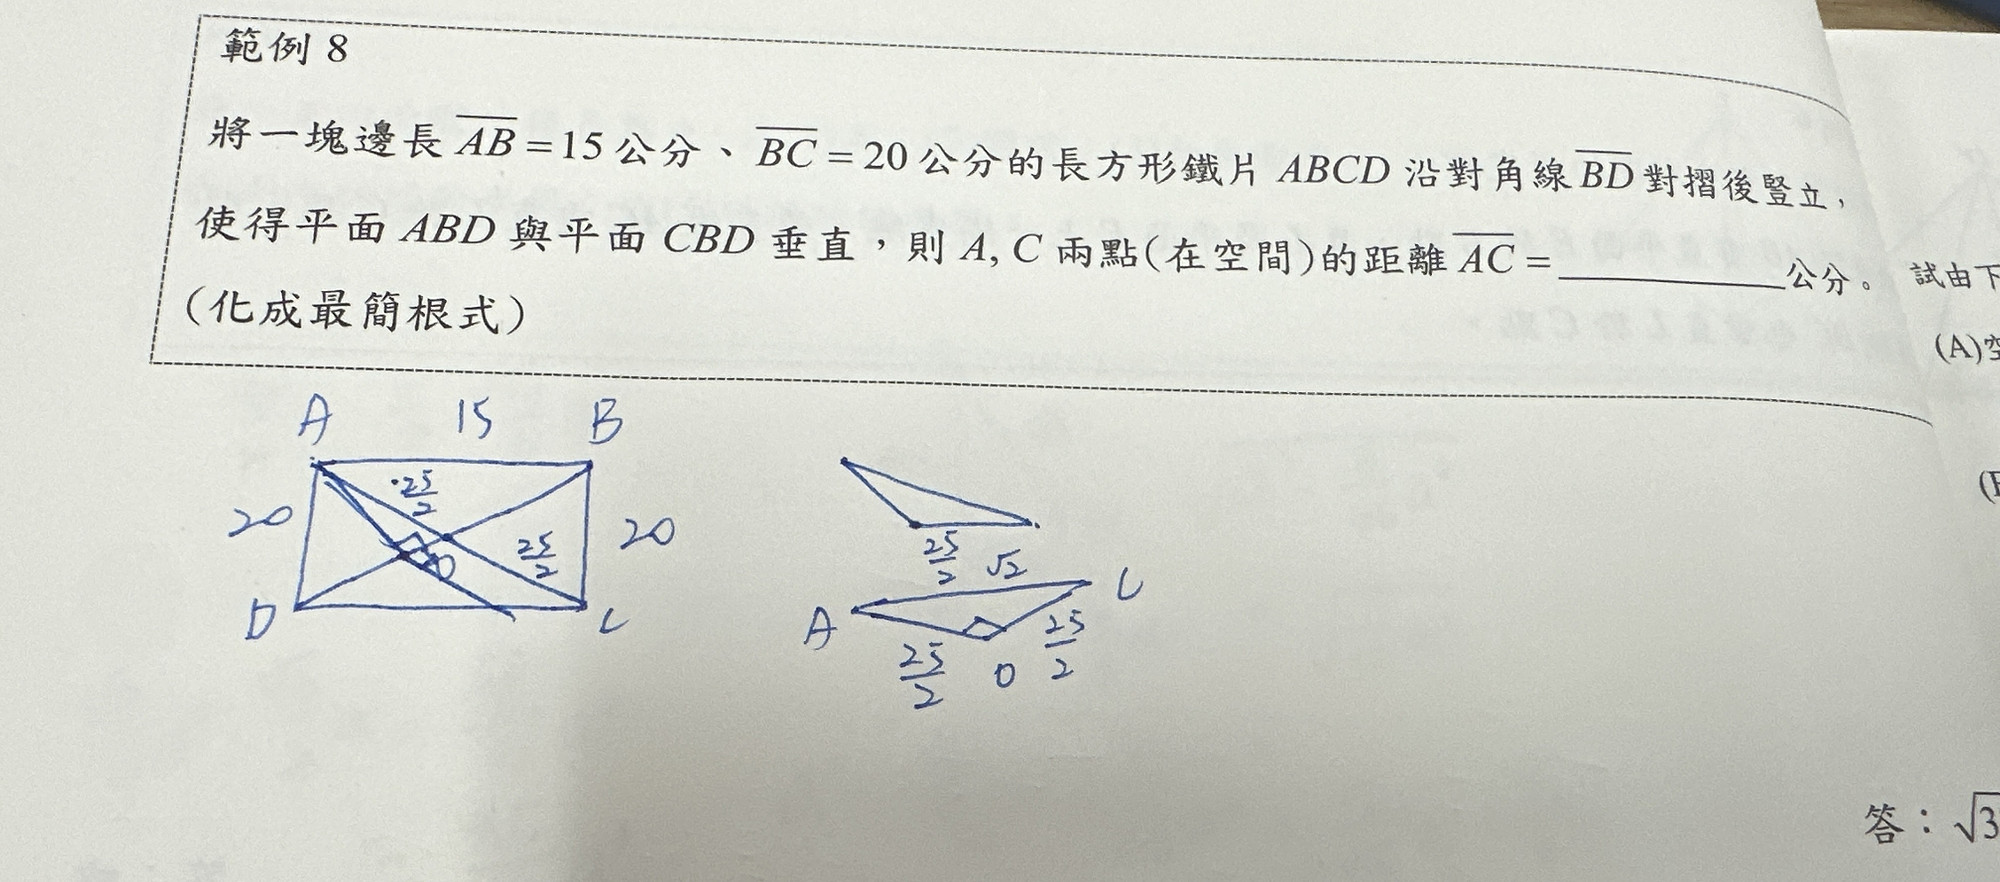 範例 8
將一塊邊長 AB = 15 公分、BC = 20 公分的長方形鐵片 ABCD 沿對角線 BD 對摺後豎立，
使得平面 ABD 與平面 CBD 垂直，則 A, C 兩點(在空間)的距離 AC = ________ 公分。
(化成最簡根式)
試由下
(A)空
A 15 B
20 25/2 25/2 20
O
D C
25/2 √2
A C
25/2 O 25/2
答：√3